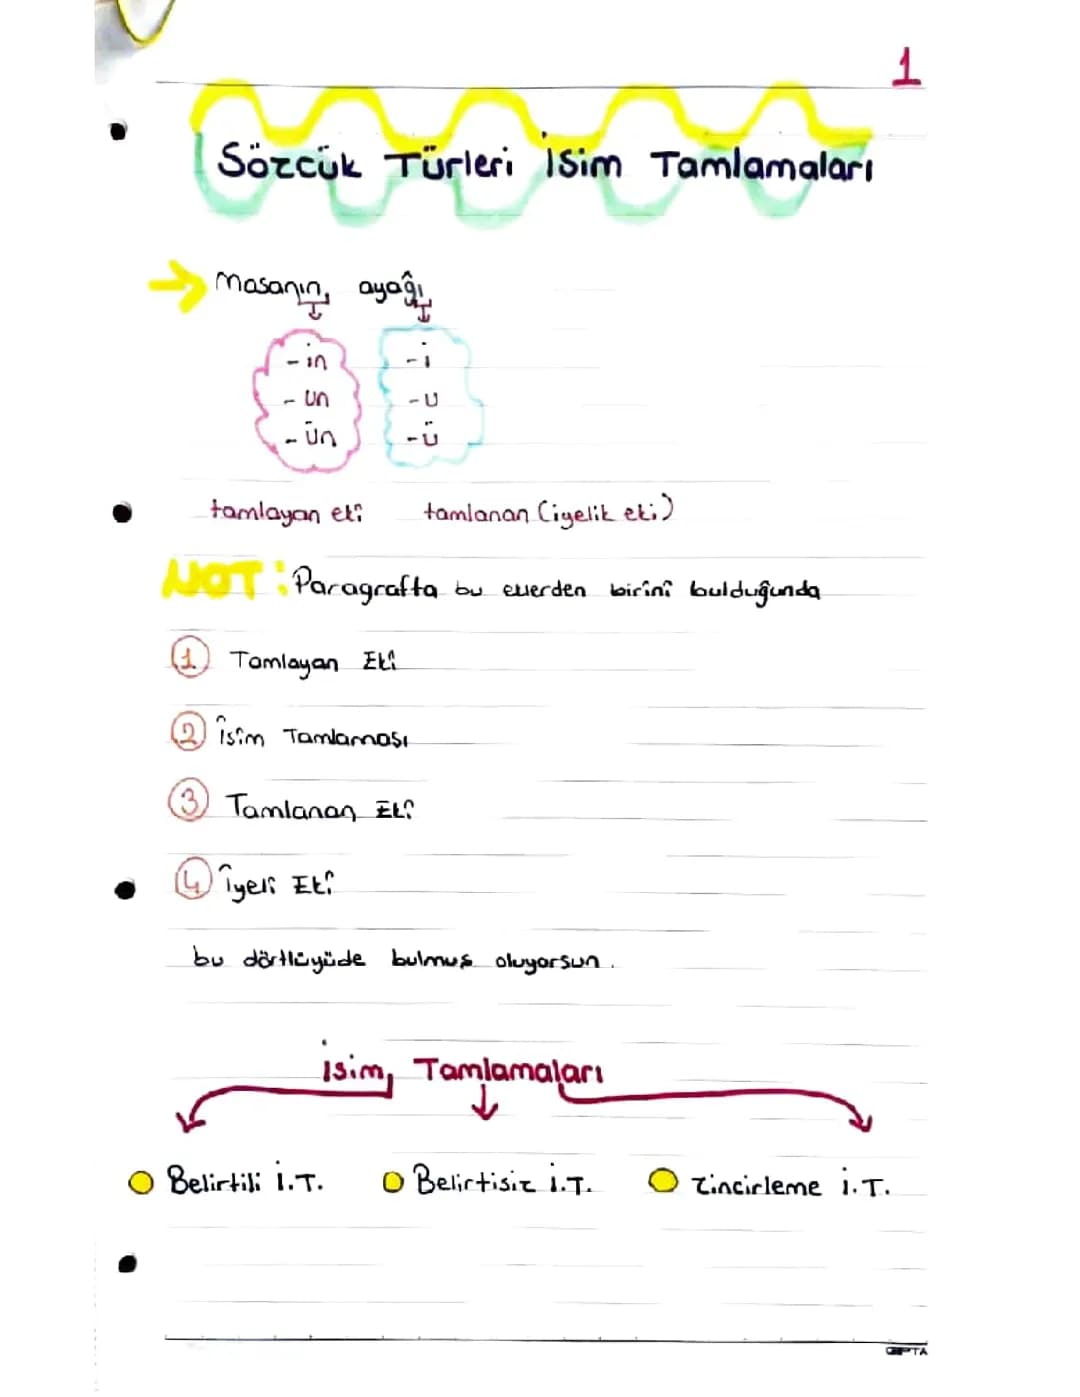 1
Sözcük Türleri İsim Tamlamaları
masanın ayağı
-in -i
-un -u
-ün -ü
tamlayan eki tamlanan (iyelik eki)
NOT: Paragrafta bu eklerden birini bulduğunda
1 Tamlayan Eki
2 İsim Tamlaması
3 Tamlanan Eki
4 İyeli Eki
bu dörtlüyüde bulmuş oluyorsun.
İsim Tamlamaları
Belirtili İ.T. Belirtisiz İ.T. Zincirleme İ.T.